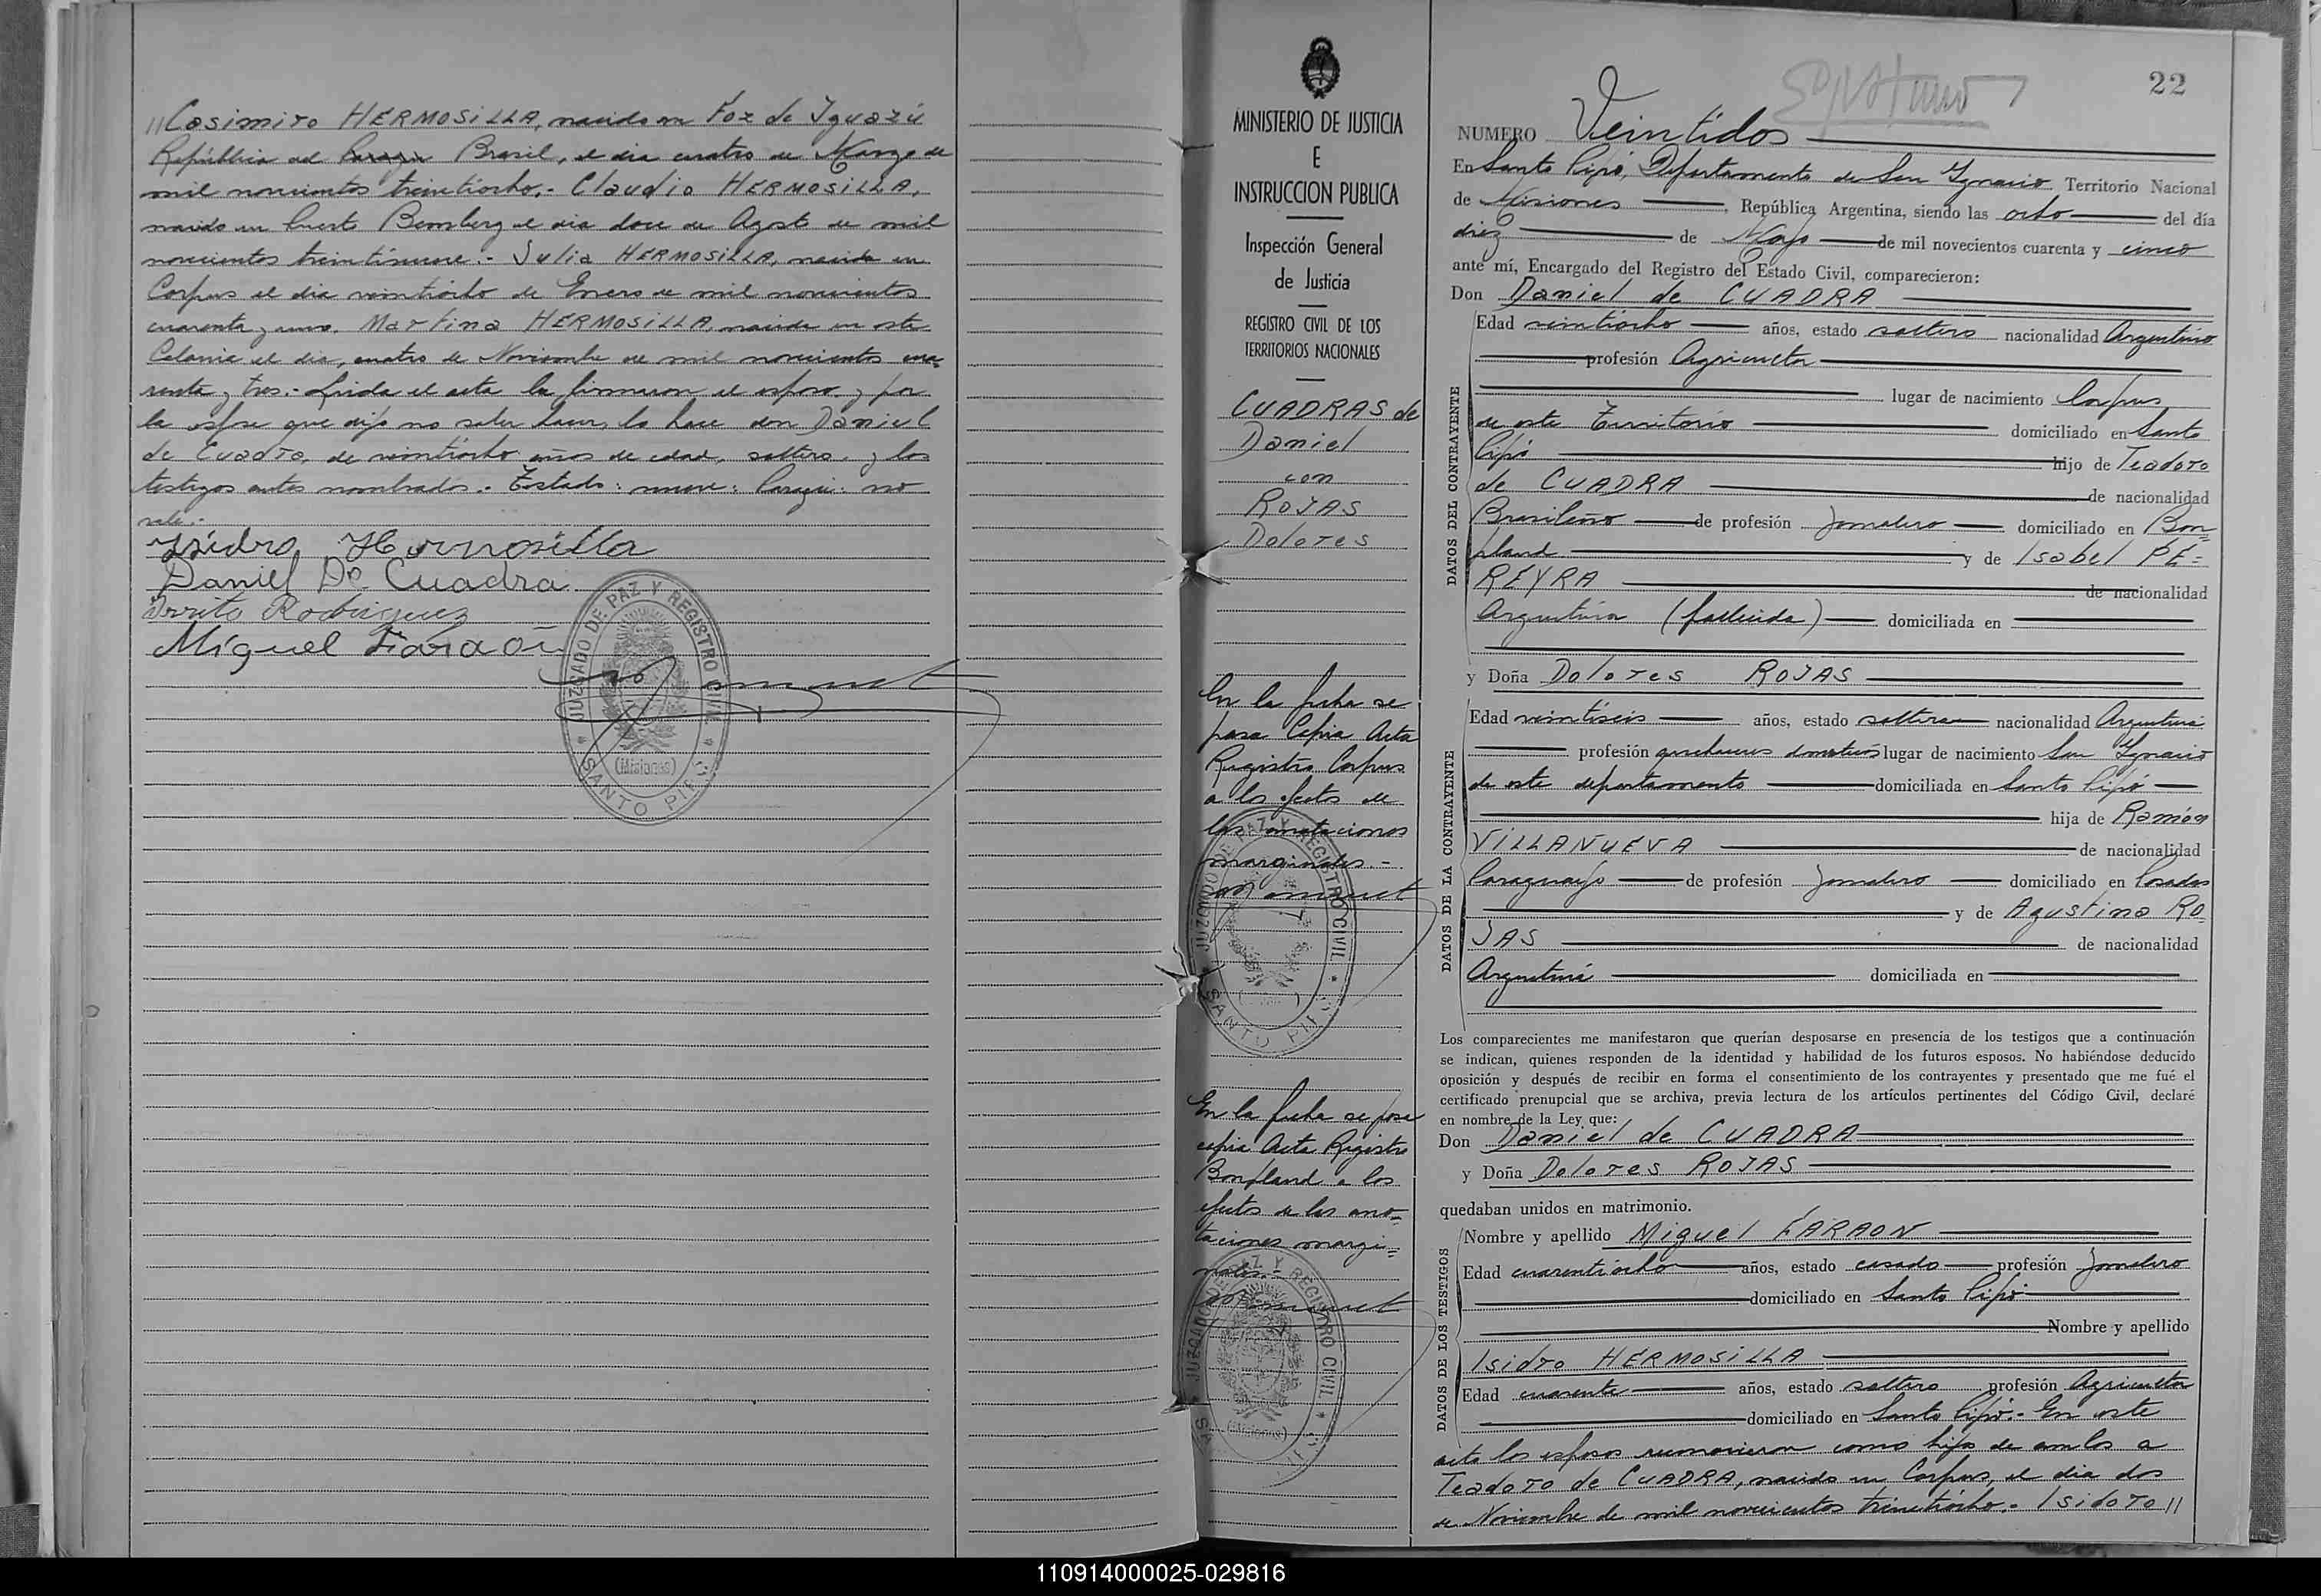 // Casimiro HERMOSILLA, nacido en Foz de Iguazú
República del Paragu Brasil, el dia cuatro de Marzo de
mil novecientos treintiocho.- Claudio HERMOSILLA,
nacido en Puerto Bemberg el dia doce de Agosto de mil
novecientos treintinueve.- Julia HERMOSILLA, nacida en
Corpus el dia veintiocho de Enero de mil novecientos
cuarenta y uno. Martina HERMOSILLA, nacida en esta
Colonia el dia, cuatro de Noviembre de mil novecientos cua-
renta y tres.- Leida el acta la firmaron el esposo y por
la esposa que dijo no saber hacer, lo hace don Daniel
de Cuadra, de veintiocho años de edad, soltero, y los
testigos antes nombrados.- Testado: Paragu: no
vale.-
Isidro Hermosilla
Daniel De Cuadra
Rodriguez
Miguel Faraon
JUZGADO DE PAZ Y REGISTRO CIVIL
(Misiones)
SANTO PIPO
MINISTERIO DE JUSTICIA
E
INSTRUCCION PUBLICA
Inspección General
de Justicia
REGISTRO CIVIL DE LOS
TERRITORIOS NACIONALES
CUADRAS de
Daniel
con
ROJAS
Dolores
En la fecha se
pasa Copia Acta
Registro Corpus
a los efectos de
las anotaciones
marginales.-
JUZGADO DE PAZ Y REGISTRO CIVIL
SANTO PIPO
En la fecha se pasa
copia Acta Registro
Bonpland a los
efectos de las ano=
taciones margi=
nales.-
JUZGADO DE PAZ Y REGISTRO CIVIL
(Misiones)
22
NUMERO Veintidos
En Santo Pipó, Departamento de San Ignacio Territorio Nacional
de Misiones, República Argentina, siendo las ocho del día
diez de Mayo de mil novecientos cuarenta y cinco
ante mí, Encargado del Registro del Estado Civil, comparecieron:
Don Daniel de CUADRA
DATOS DEL CONTRAYENTE
Edad veintiocho años, estado soltero nacionalidad Argentino
profesión Agricultor
lugar de nacimiento Corpus
de este Territorio domiciliado en Santo
Pipó hijo de Teodoro
de CUADRA de nacionalidad
Brasileño de profesión Jornalero domiciliado en Bon=
pland y de Isabel PE=
REYRA de nacionalidad
Argentina (fallecida) domiciliada en
y Doña Dolores ROJAS
DATOS DE LA CONTRAYENTE
Edad veintiseis años, estado soltera nacionalidad Argentina
profesión quehaceres domesticos lugar de nacimiento San Ignacio
de este departamento domiciliada en Santo Pipó
hija de Ramón
VILLANUEVA de nacionalidad
Paraguayo de profesión Jornalero domiciliado en Posadas
y de Agustina RO=
JAS de nacionalidad
Argentina domiciliada en
Los comparecientes me manifestaron que querían desposarse en presencia de los testigos que a continuación
se indican, quienes responden de la identidad y habilidad de los futuros esposos. No habiéndose deducido
oposición y después de recibir en forma el consentimiento de los contrayentes y presentado que me fué el
certificado prenupcial que se archiva, previa lectura de los artículos pertinentes del Código Civil, declaré
en nombre de la Ley que:
Don Daniel de CUADRA
y Doña Dolores ROJAS
quedaban unidos en matrimonio.
DATOS DE LOS TESTIGOS
Nombre y apellido Miguel FARAON
Edad cuarentiocho años, estado casado profesión Jornalero
domiciliado en Santo Pipó
Nombre y apellido
Isidro HERMOSILLA
Edad cuarenta años, estado soltero profesión Agricultor
domiciliado en Santo Pipó.- En este
acto los esposos reconocieron como hijos de ambos a
Teodoro de CUADRA, nacido en Corpus, el dia dos
de Noviembre de mil novecientos treintiocho.- Isidoro //
110914000025-029816